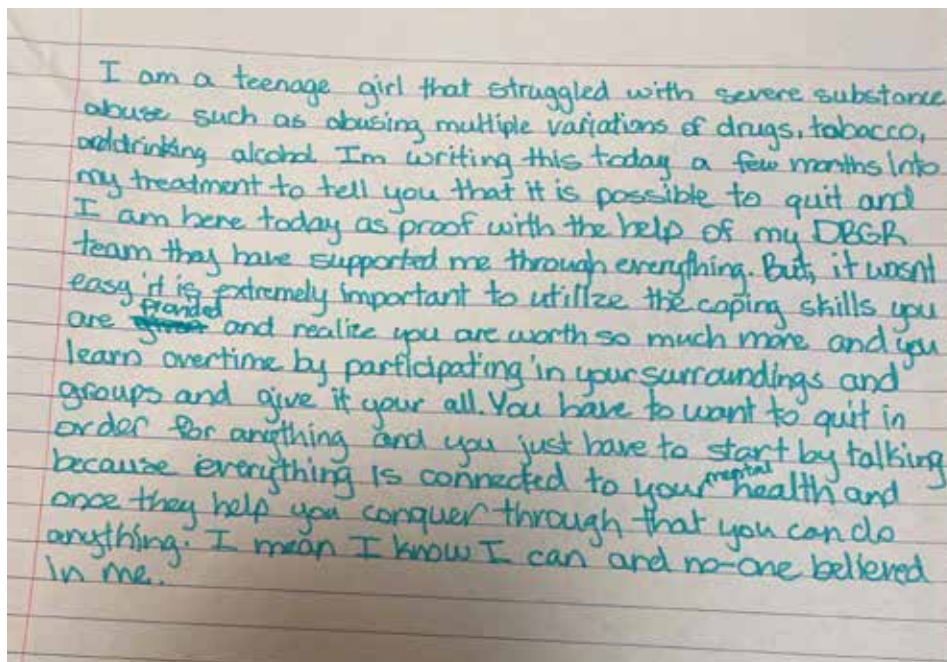 I am a teenage girl that struggled with severe substance
abuse such as abusing multiple variations of drugs, tobacco,
and drinking alcohol. Im writing this today a few months into
my treatment to tell you that it is possible to quit and
I am here today as proof with the help of my DBGR
team they have supported me through everything. But, it wasnt
easy it is extremely important to utillze the coping skills you
are provided and realize you are worth so much more and you
learn overtime by participating in your surroundings and
groups and give it your all. You have to want to quit in
order for anything and you just have to start by talking
because everything is connected to your mental health and
once they help you conquer through that you can do
anything. I mean I know I can and no-one believed
in me.